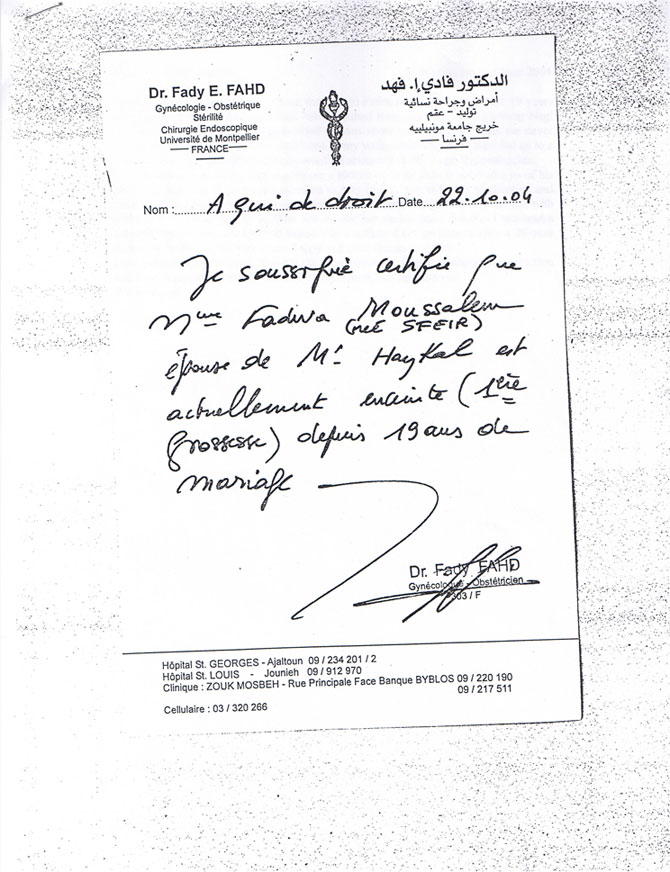 Dr. Fady E. FAHD
Gynécologie - Obstétrique
Stérilité
Chirurgie Endoscopique
Université de Montpellier
FRANCE
الدكتور فادي إ. فهد
أمراض وجراحة نسائية
توليد - عقم
خريج جامعة مونبيلييه
- فرنسا -
Nom : A qui de droit Date 22.10.04
Je soussigné certifie que
Mme Fadwa Moussalem
(née SFEIR)
épouse de Mr Haykal est
actuellement enceinte (1ère
grossesse) depuis 19 ans de
mariage
Dr. Fady FAHD
Gynécologue - Obstétricien
303 / F
Hôpital St. GEORGES - Ajaltoun 09 / 234 201 / 2
Hôpital St. LOUIS - Jounieh 09 / 912 970
Clinique : ZOUK MOSBEH - Rue Principale Face Banque BYBLOS 09 / 220 190
09 / 217 511
Cellulaire : 03 / 320 266